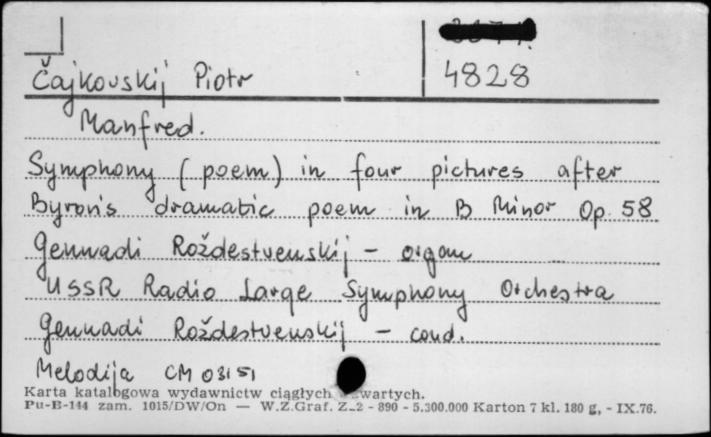 Čajkovskij Piotr 4828
Manfred.
Symphony (poem) in four pictures after
Byron's dramatic poem in B Minor Op. 58
Gennadi Roždestvenskij - organ
USSR Radio Large Symphony Orchestra
Gennadi Roždestvenskij - cond.
Melodija CM 03151
Karta katalogowa wydawnictw ciągłych zwartych.
Pu-B-144 zam. 1015/DW/On — W.Z.Graf. Z-2 - 890 - 5.300.000 Karton 7 kl. 180 g, - IX.76.